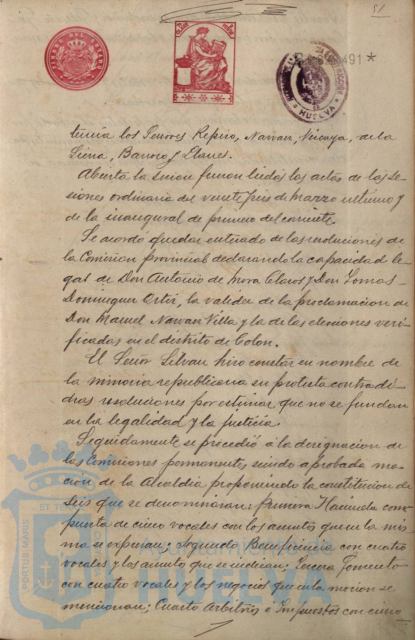 51
491*
HUELVA
tencia los Señores Repiso, Navarro, Vizcaya, de la
Siena, Barroso y Llanes.
Abierta la sesion fueron leidas las actas de las se-
siones ordinaria del veinte tres de marzo ultimo y
de la inaugural de primero del corriente.
Se acordó quedar enterado de las resoluciones de
la Comision provincial declarando la capacidad le-
gal de Don Antonio de Mora Claros y Don Tomas
Dominguez Ortiz, la validez de la proclamacion de
Don Manuel Navarro Villa y la de las elecciones veri-
ficadas en el distrito de Colon.
El Señor Silvan hizo constar en nombre de
la minoria republicana su protesta contra di-
chas resoluciones por estimar que no se fundan
en la legalidad y la justicia.
Seguidamente se procedió á la designacion de
las Comisiones permanentes siendo aprobada mo-
cion de la Alcaldia proponiendo la constitucion de
seis que se denominaran: primera Hacienda com-
puesta de cinco vocales con los asuntos que en la mis-
ma se expresan; Segunda Beneficencia con cuatro
vocales y los asuntos que se indican; tercera Fomento
con cuatro vocales y los negocios que en la mocion se
mencionan; Cuarta Arbitrios é Impuestos con cinco
PORTUS MARIS